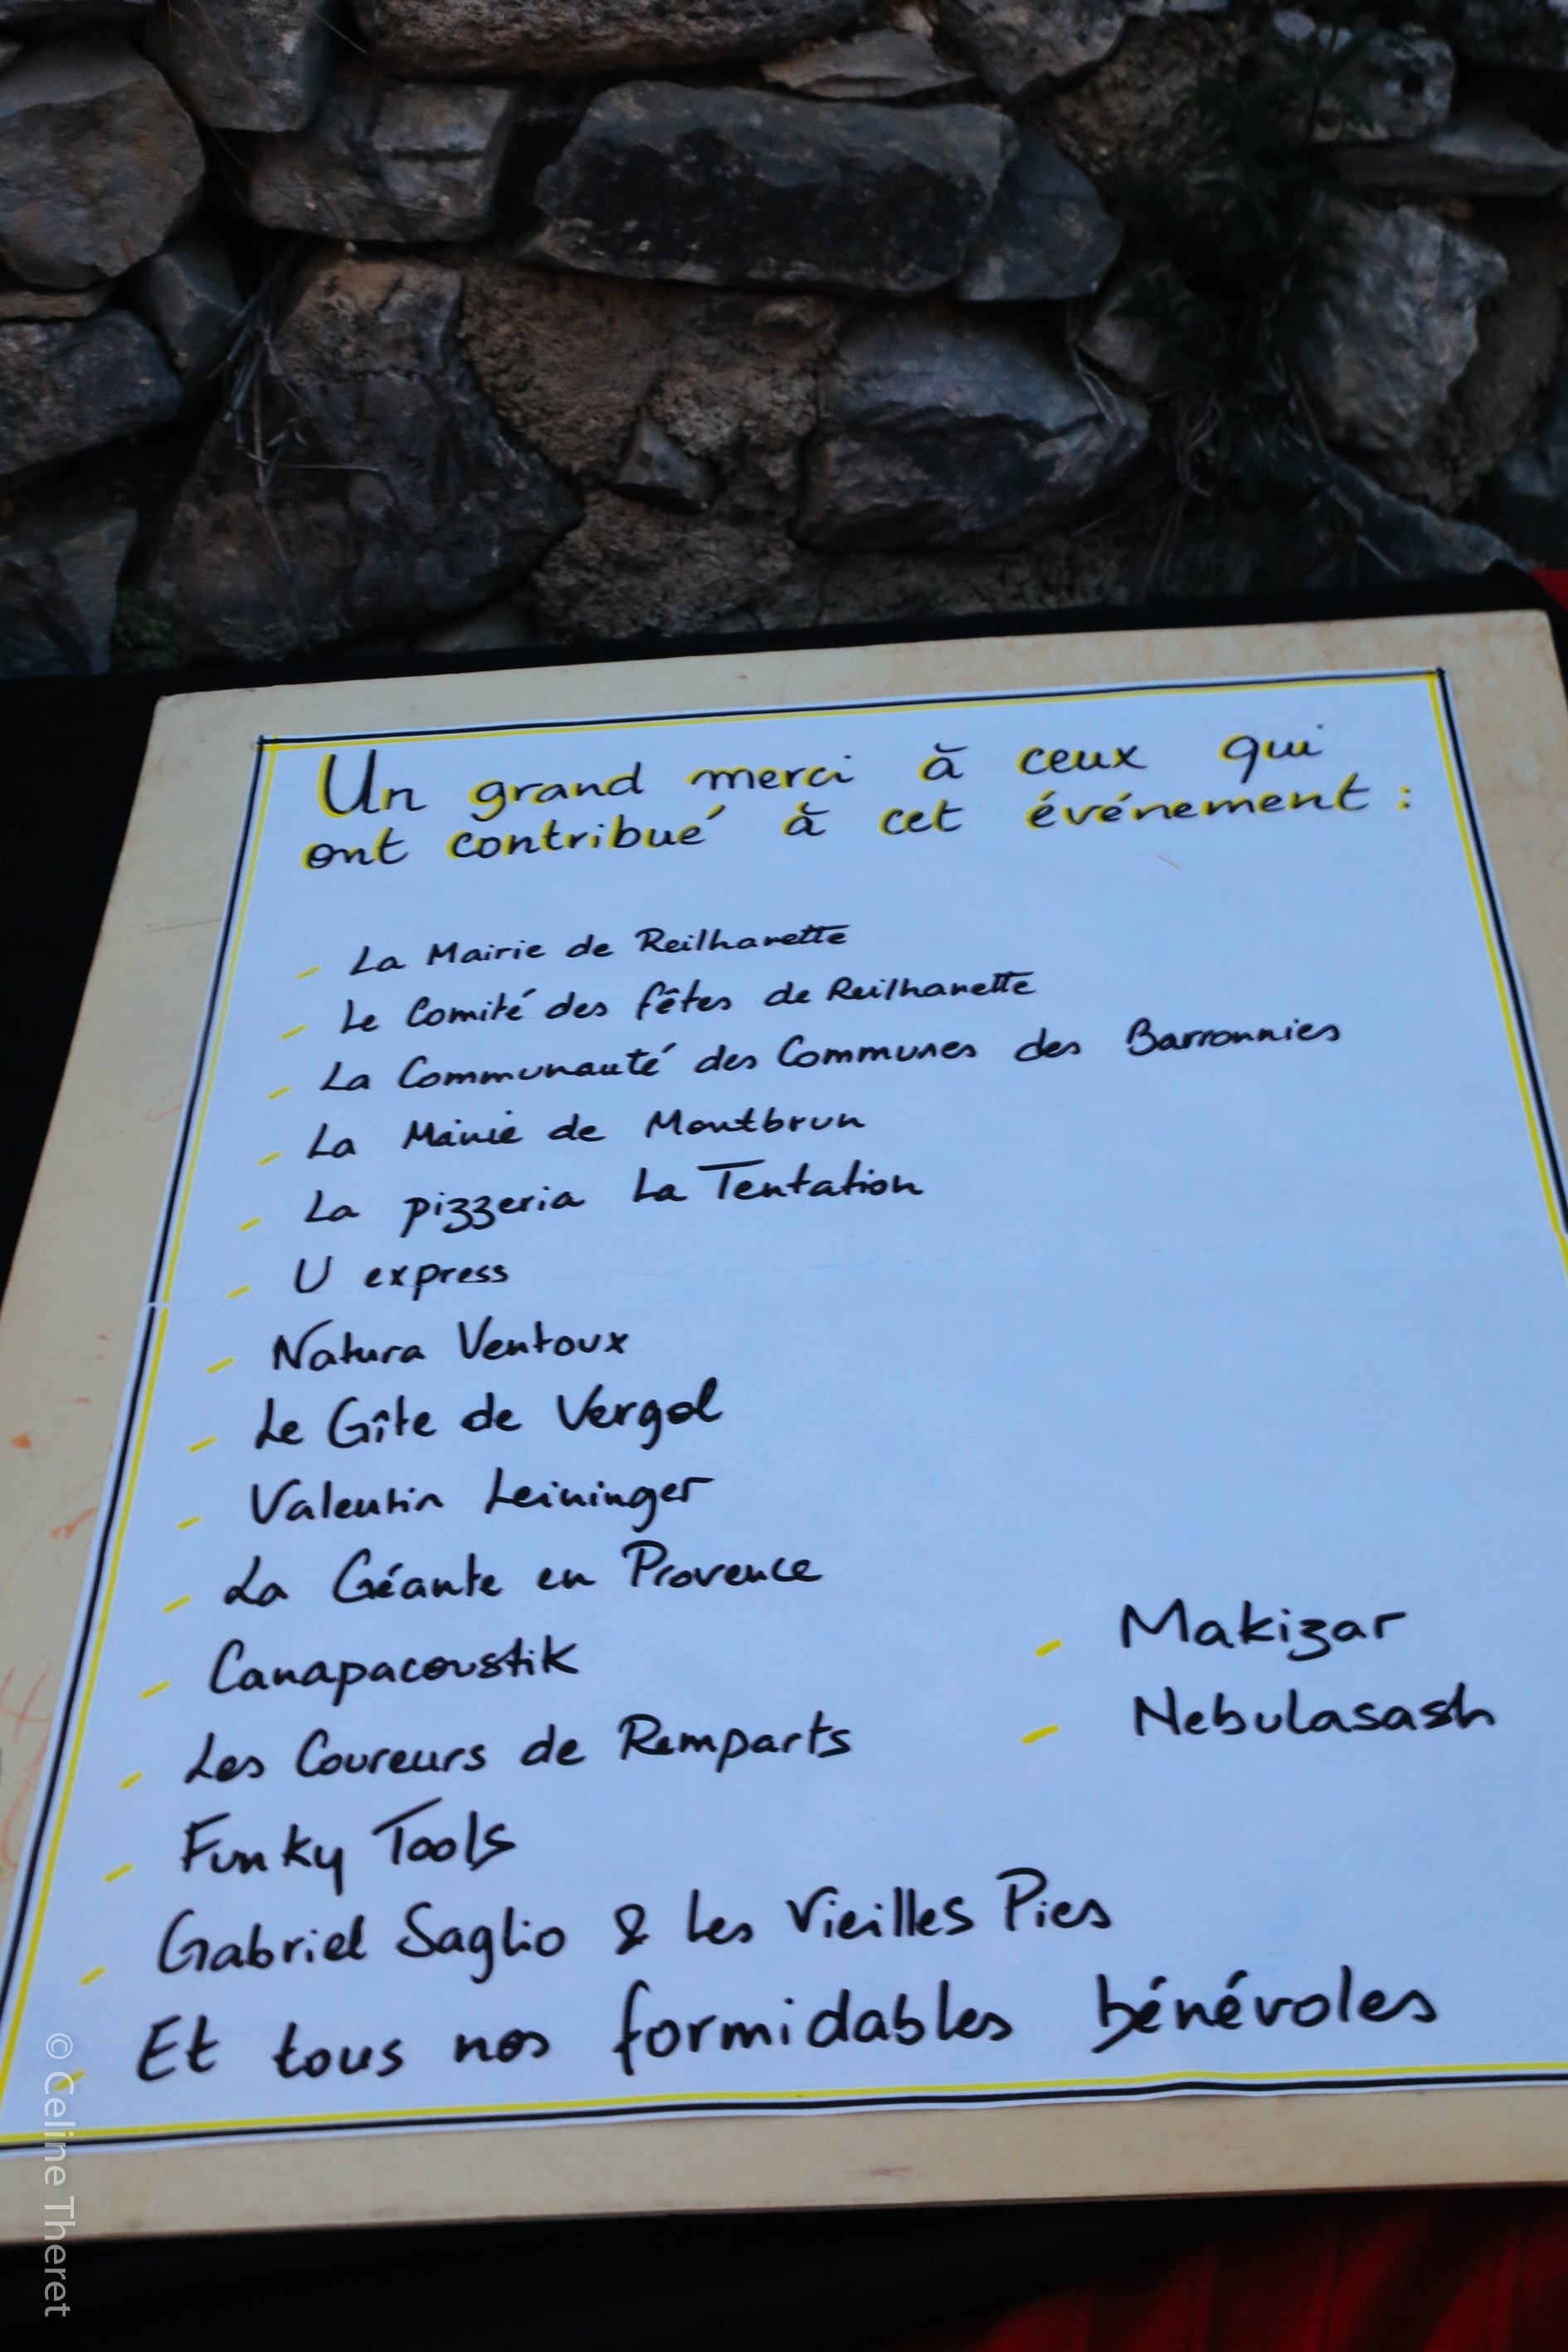 Un grand merci à ceux qui
ont contribué à cet événement :
- La Mairie de Reilhanette
- Le Comité des fêtes de Reilhanette
- La Communauté des Communes des Barronnies
- La Mairie de Montbrun
- La pizzeria La Tentation
- U express
- Natura Ventoux
- Le Gîte de Vergol
- Valentin Leininger
- La Géante en Provence
- Canapacoustik
- Les Coureurs de Remparts
- Funky Tools
- Gabriel Saglio & Les Vieilles Pies
- Et tous nos formidables bénévoles
- Makizar
- Nebulasash
© Celine Theret